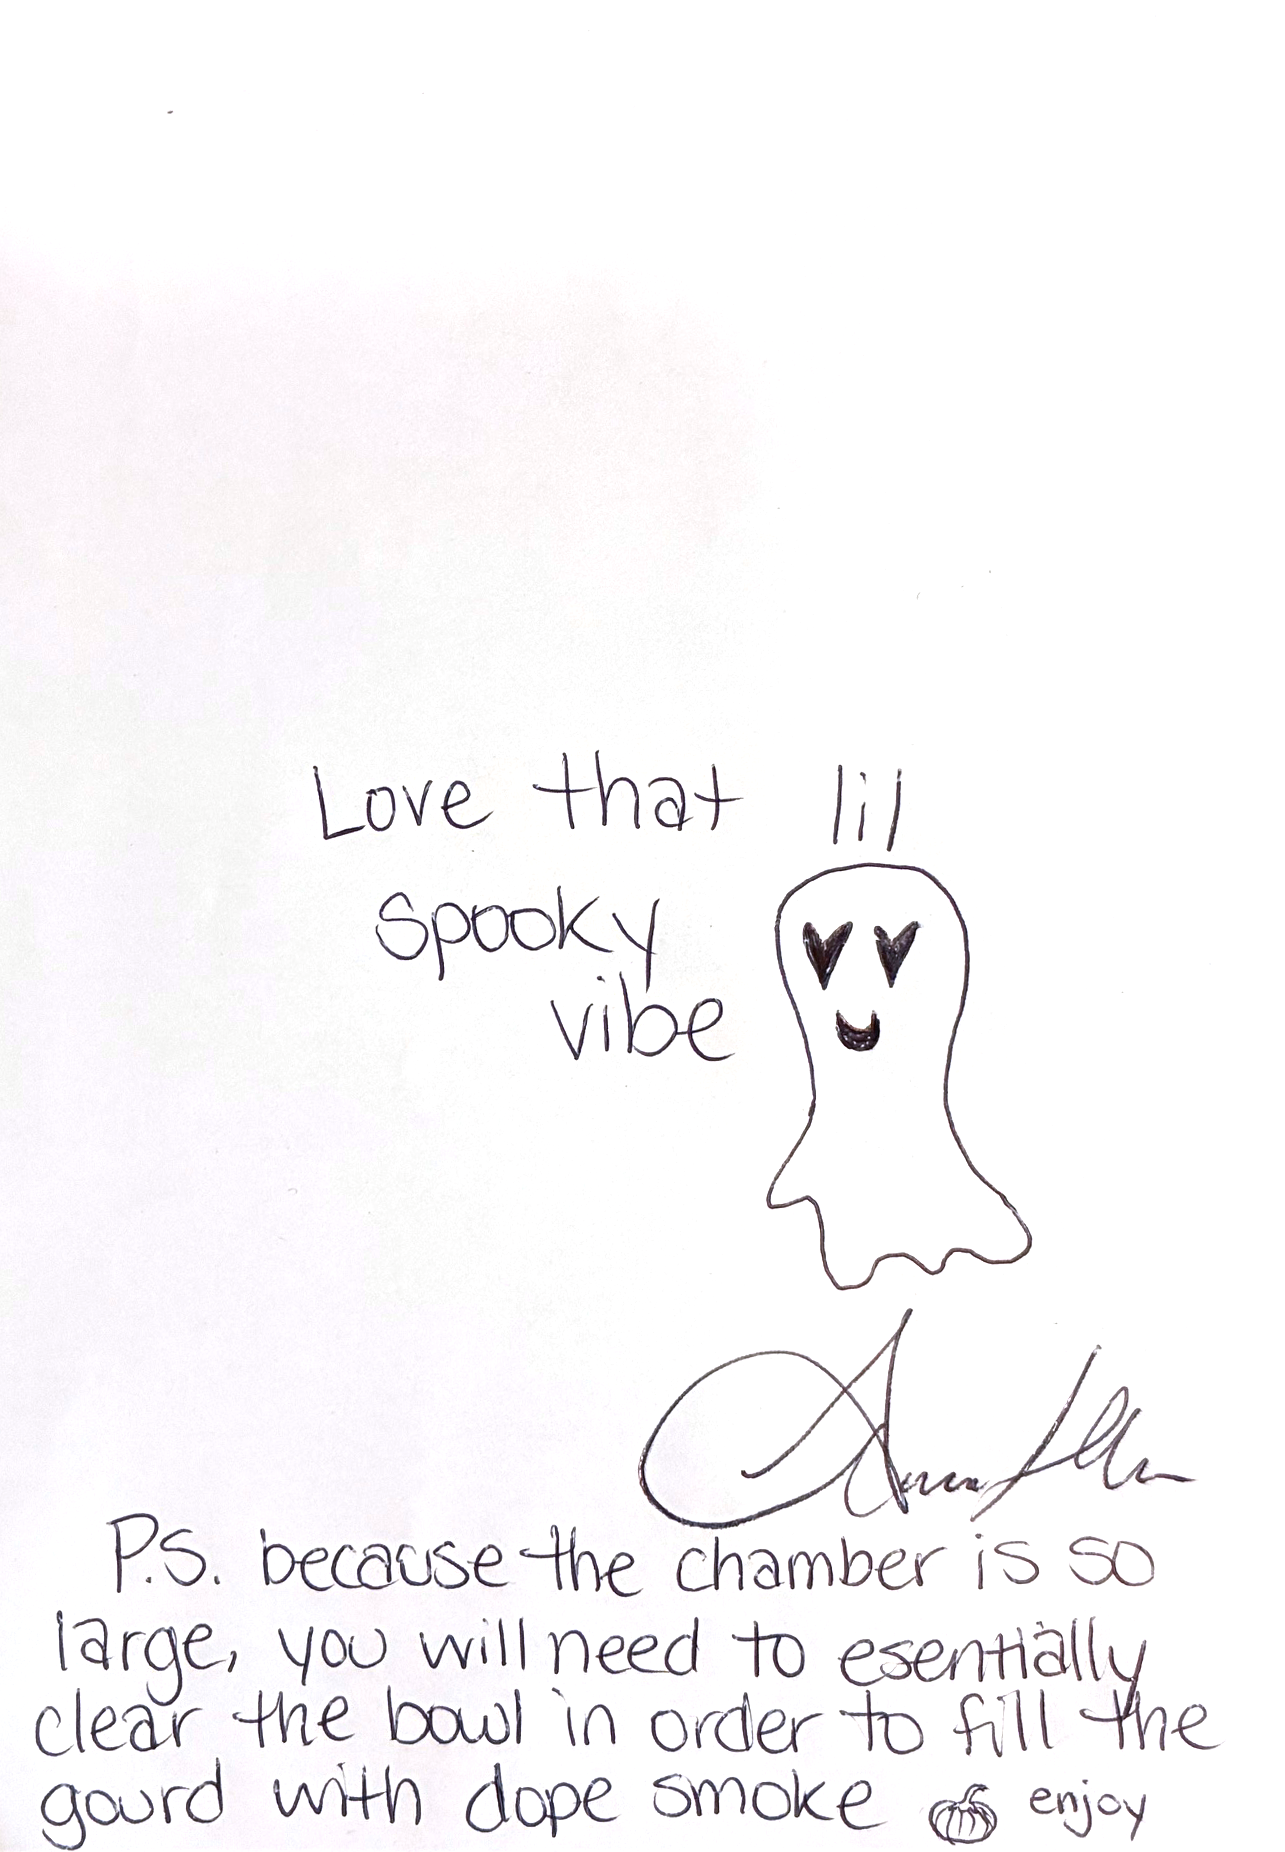 Love that lil
spooky
vibe
P.S. because the chamber is so
large, you will need to esentially
clear the bowl in order to fill the
gourd with dope smoke enjoy